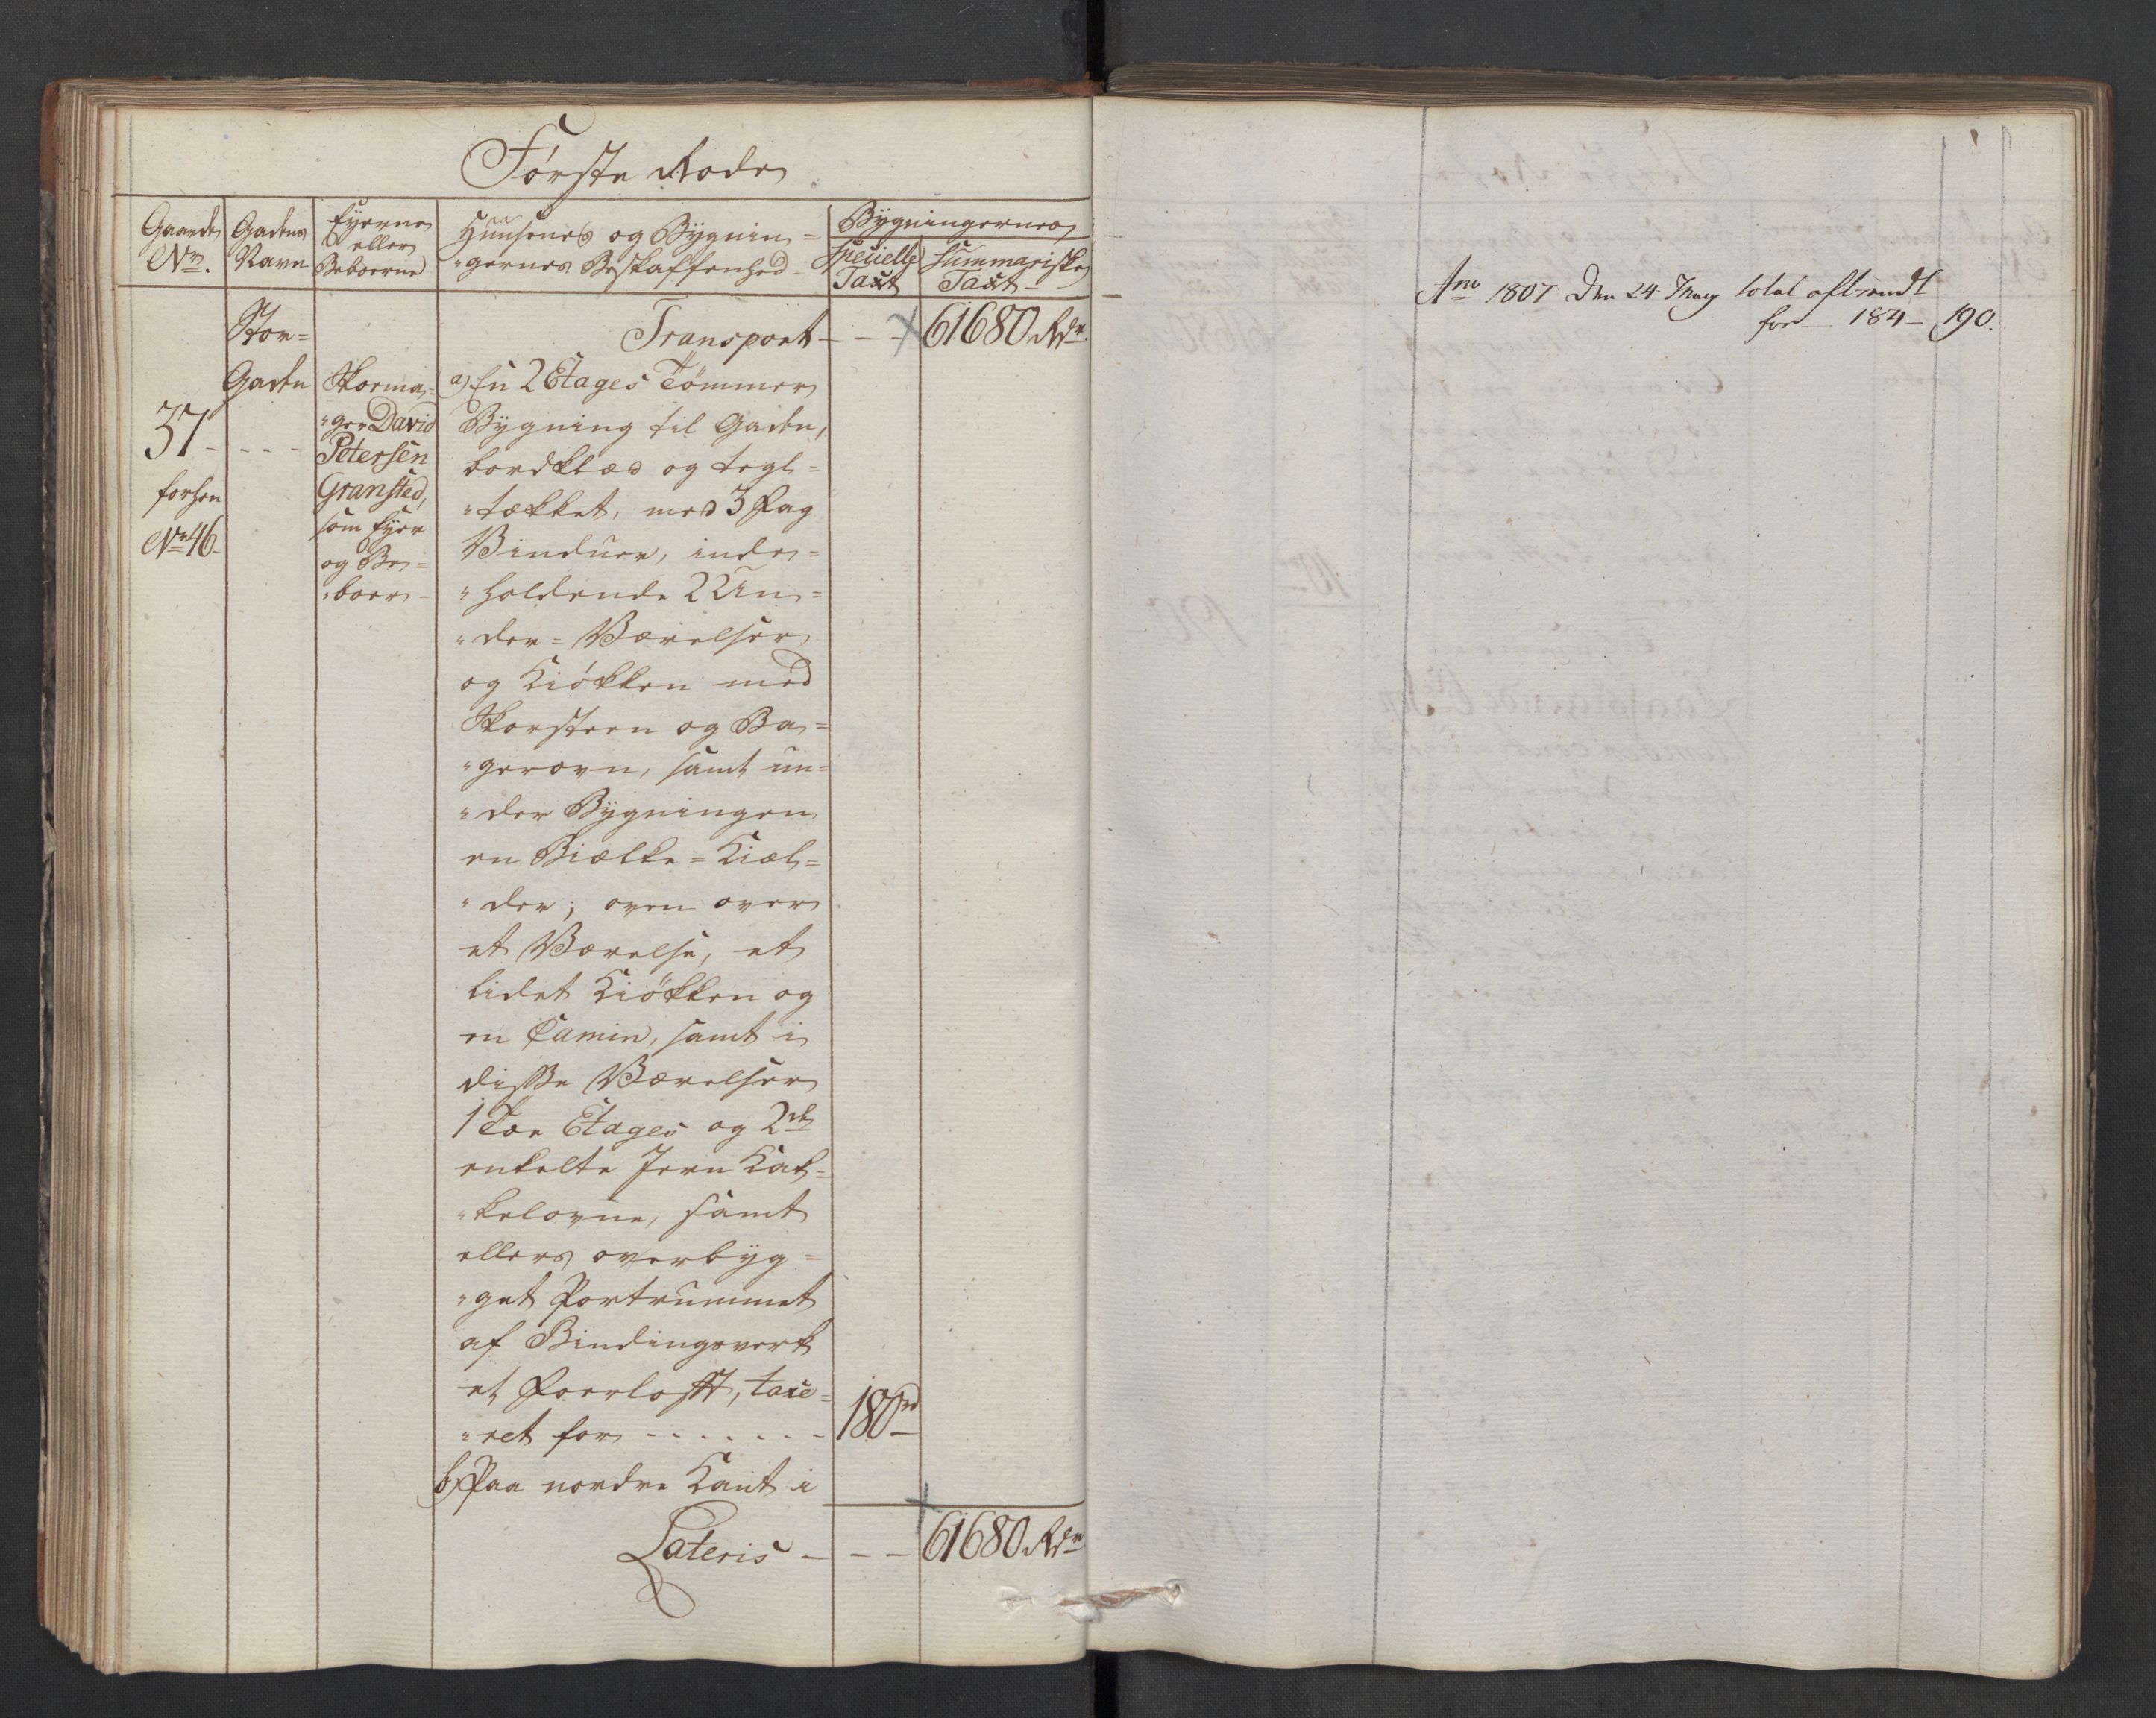 Første Rode
Gaardens No.
Gadens Navn
Eyerne eller Beboerne
Huusenes og Bygnin=
"gernes Beskaffenhed
Bygningernes
Specielle Taxt
Summariske Taxt
Stor=
Gaden
37 - - - -
forhen
No 46
Skoma=
"ger David
Petersen
Gransted,
som Eyer
og Be=
"boer
Transport - - - 61680 Rdr
a) En 2 Etages Tømmer
Bygning til Gaden,
bordklæd og tegl=
"tækket, med 3 Fag
Vinduer, inde=
"holdende 2 Un=
"der=Værelser
og Kiøkken med
Skorsteen og Ba=
"gerovn, samt un=
"der Bygningen
en Bielke=Kiel=
"der; oven over
et Værelse, et
lidet Kiøkken og
en Camin, samt i
disse Værelser
1 Toe Etages og 2de
enkelte Jern Kak=
"kelovne, samt
ellers overbyg=
"get Portrummet
af Bindingsverk
et Foerloft, taxe=
"ret for - - - - - - 180 rd
b) Paa nordre Kant i
Lateris - - - 61680 Rdr
Ano 1807 den 24 May total afbrendt
for 184 - 190.